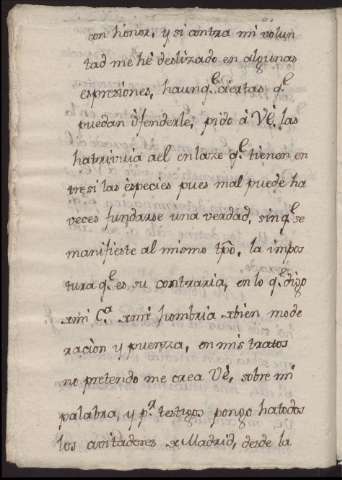 con honor, y si contra mi volun
tad me hé deslizado en algunas
espresiones, haunq.e ciertas q.e
puedan ofenderle, pido á Vé. las
hatrivuia ael enlaze q.e tienen en
tresi las especies pues mal puede ha
veces fundarse una verdad, sinq.e se
manifieste al mismo tpô. la impos
tura q.e es su contraria, en lo q.e digo
xmi C.a xmi hombria xbien mode
racion y pureza, en mis tratos
no pretendo me crea Vé, sobre mi
palabra, y p.r testigos pongo hatodos
los avitadores xMadrid, desde la